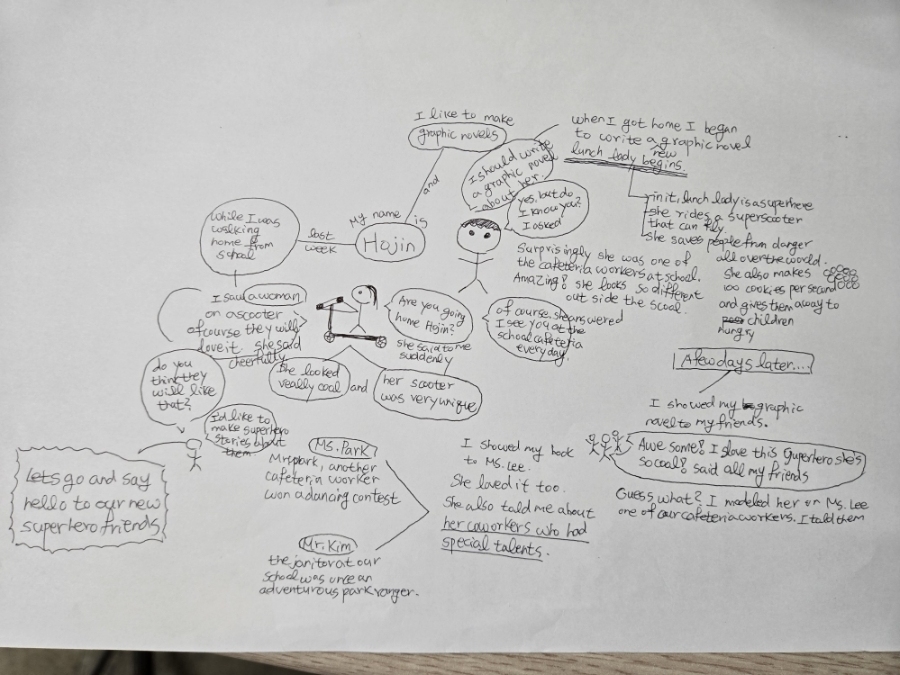 I like to make
graphic novels
and
My name is
Hojin
last
week
While I was
walking
home from
school
I saw a woman
on a scooter
Are you going
home Hojin?
she said to me
suddenly
her scooter
was very unique
and
she looked
really cool
yes, but do
I know you?
I asked
of course. she answered
I see you at the
school cafeteria
every day.
Surprisingly she was one of
the cafeteria workers at school.
Amazing! she looks so different
out side the scool.
I should write
a graphic novel
about her.
when I got home I began
to write a graphic novel
new
lunch lady begins.
in it, lunch lady is a superhero
she rides a superscooter
that can fly
she saves people from danger
all over the world.
She also makes
100 cookies per second
and gives them away to
children
hungry
A few days later....
I showed my graphic
novel to my friends.
Awesome! I slove this superhero she's
so cool! said all my friends
Guess what? I modeled her on Ms. Lee
one of our cafeteria workers. I told them
I showed my book
to Ms. Lee.
She loved it too.
She also told me about
her coworkers who had
special talents.
Ms. Park
Mr. park, another
cafeteria worker
won a dancing contest
Mr. Kim
the janitor at our
school was once an
adventurous park ranger.
I'd like to
make superhero
stories about
them
do you
think they
will like
that?
of course they will
love it she said
cheerfully
Lets go and say
hello to our new
superhero friends